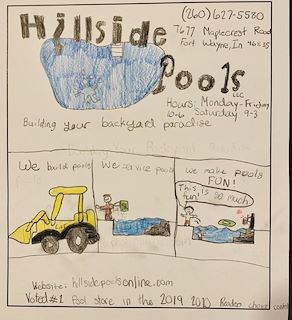 Hillside
(260) 627-5580
7677 Maplecrest Road
Fort Wayne, In 46835
Pools
LLC
Hours: Monday-Friday
10-6 Saturday 9-3
Building your backyard paradise
We build pools
We service pools
We make pools
FUN!
This is so much
fun!
Website: hillsidepoolsonline.com
Voted #1 Pool store in the 2019 2020 Readers choice